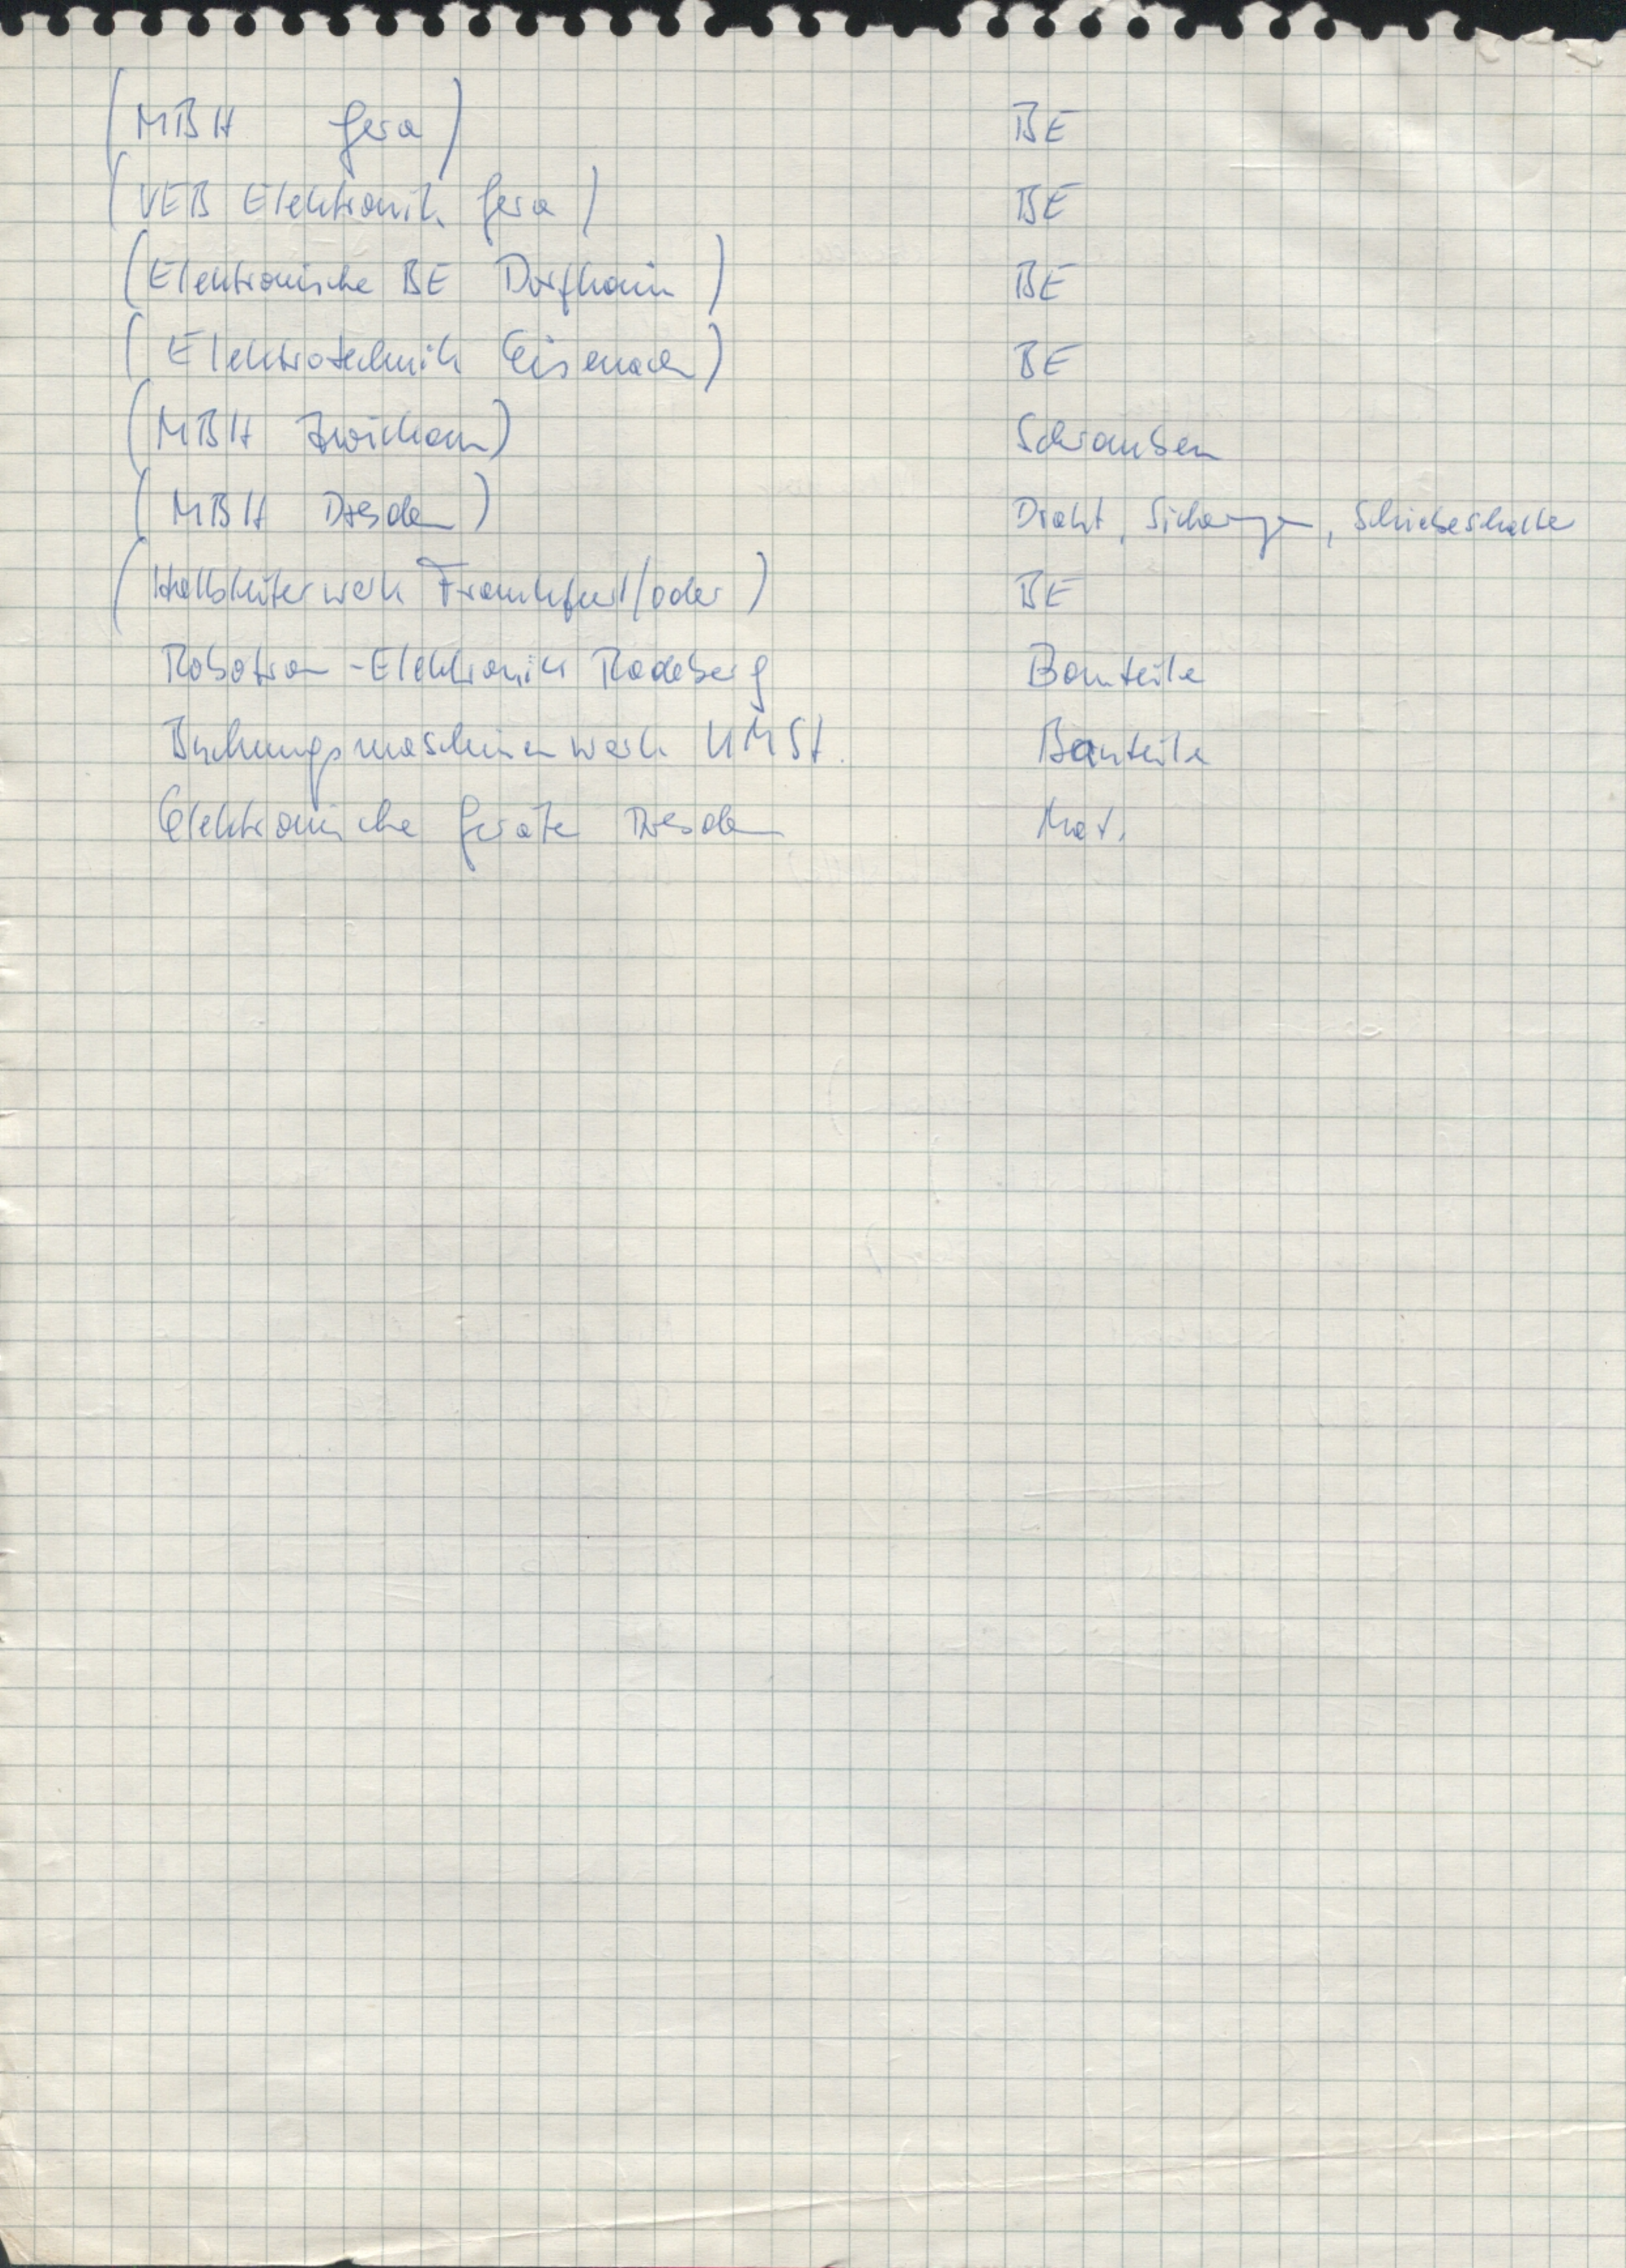 (MBH Gera) BE
(VEB Elektronik Gera) BE
(Elektronische BE Dorfhain) BE
(Elektrotechnik Eisenach) BE
(MBH Zwickau) Schrauben
(MBH Dresden) Draht, Sicherungen, Schiebeschalter
(Halbleiterwerk Frankfurt/oder) BE
Robotron-Elektronik Radeberg Bauteile
Buchungsmaschinenwerk KMSt. Bauteile
Elektronische Geräte Dresden Mat.